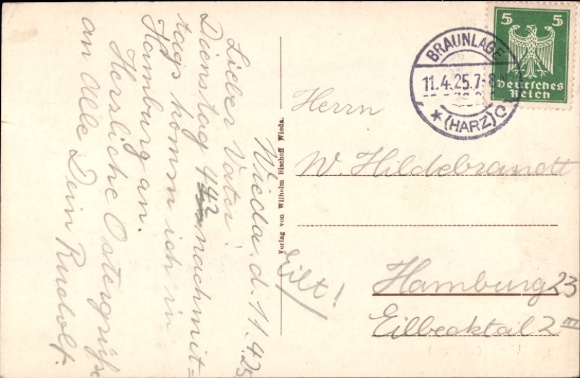 Wieda d. 11.4.25
Lieber Vater!
Dienstag 4 42 nachmit=
tags komm ich in
Hamburg an.
Herzliche Ostergrüße
an Alle Dein Rudolf.
Verlag von Wilhelm Bischoff Wieda.
BRAUNLAGE
11.4.25.7-8
* (HARZ) c
5 5
Deutsches
Reich
Herrn
W Hildebrandt
Eilt!
Hamburg 23
Eilbecktal 2 III